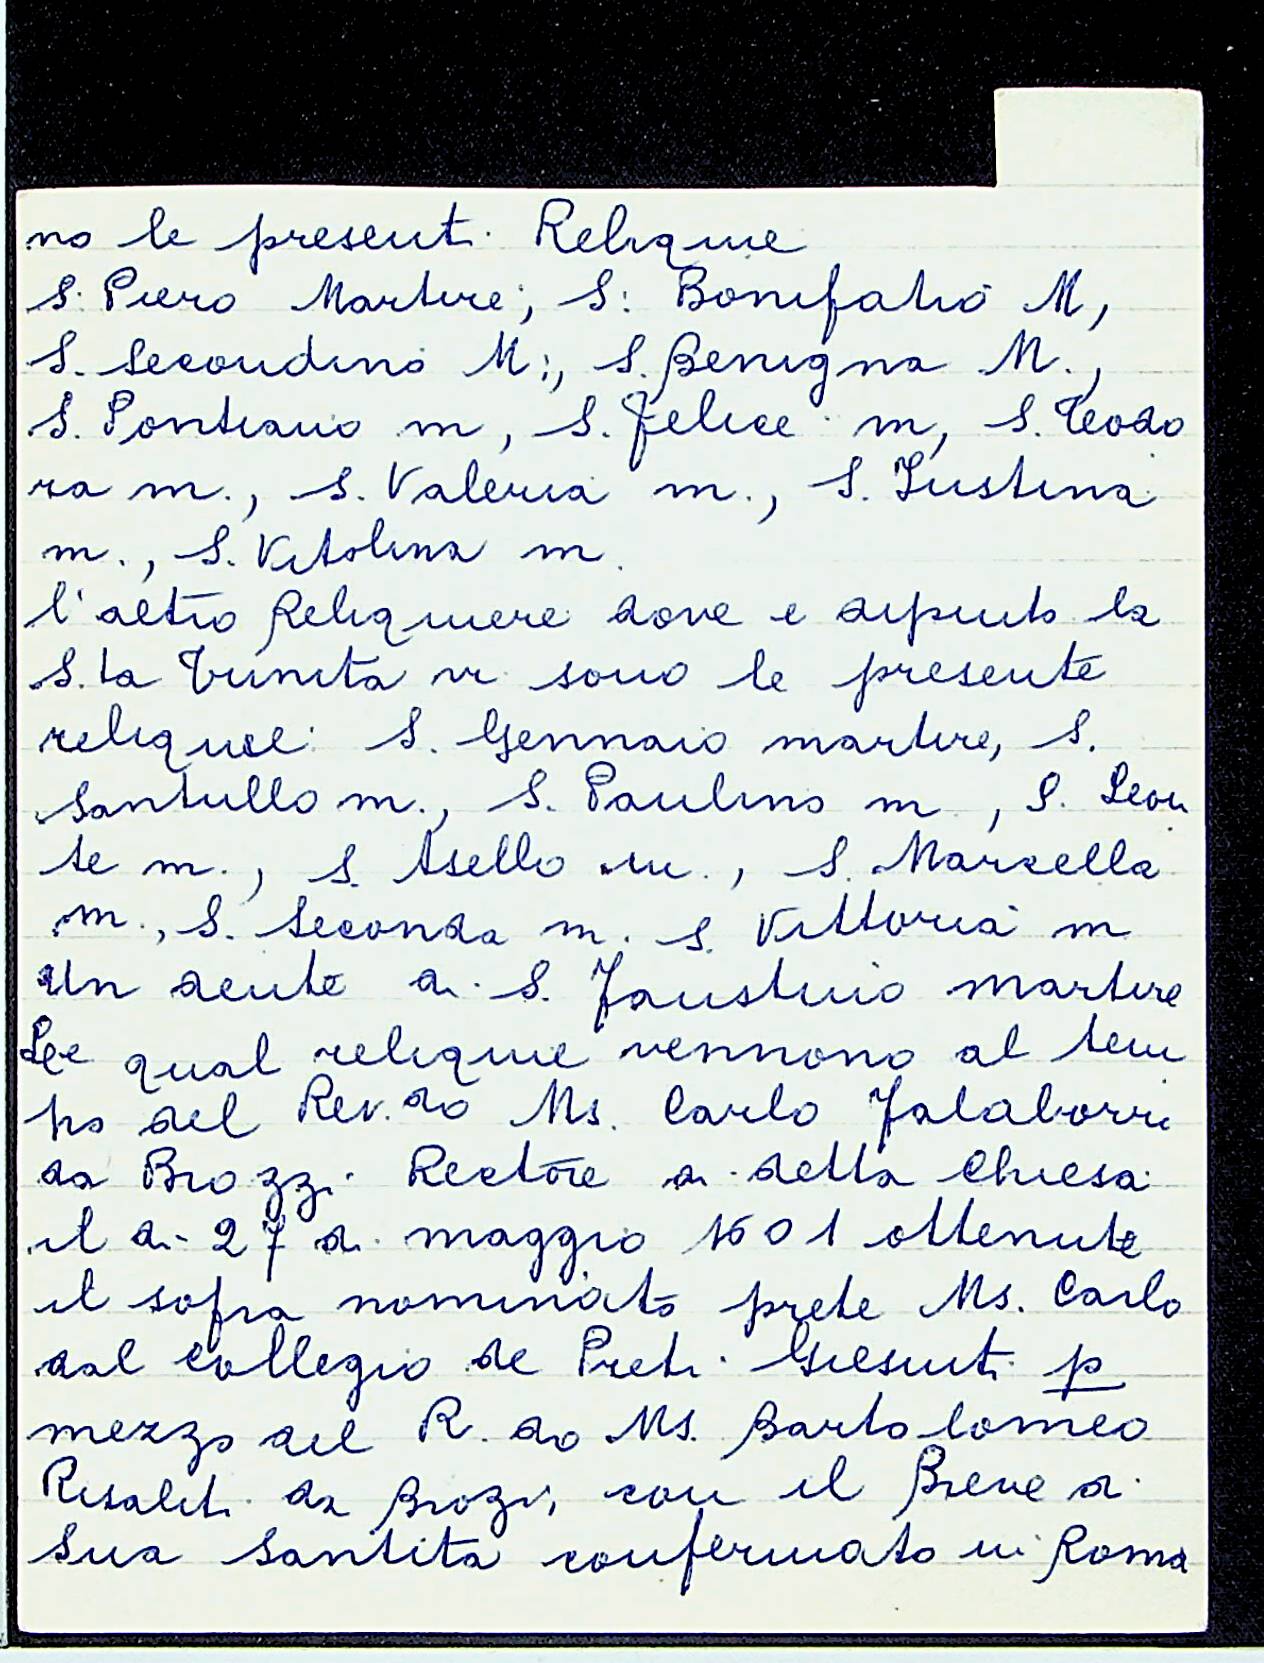 no le presenti Reliquie
S. Piero Martire; S: Bonifatio M,
S. Secondino M:, S. Benigna M.,
S. Pontiano m, S. Felice m, S. Teodo
ra m., S. Valeria m., S. Iustina
m., S. Vitolina m.
l'altro Reliquiere dove e dipinto la
S.ta Trinita vi sono le presente
reliquie: S. Gennaio martire, S.
Santullo m., S. Paulino m., S. Leon
te m., S. Asello m., S. Marcella
m., S. Seconda m. S. Vittoria m
Un dente di S. Faustino martire
Le qual reliquie vennono al tem
po del Rev.do Ms. Carlo Falaborri
da Brozzi Rectore di detta Chiesa
il di 27 di maggio 1601 ottenute
il sopra nominato prete Ms. Carlo
dal Collegio de Preti Giesuiti p
mezzo del R.do Ms. Bartolomeo
Risaliti da Brozzi, con il Breve di
Sua Santita confermato in Roma